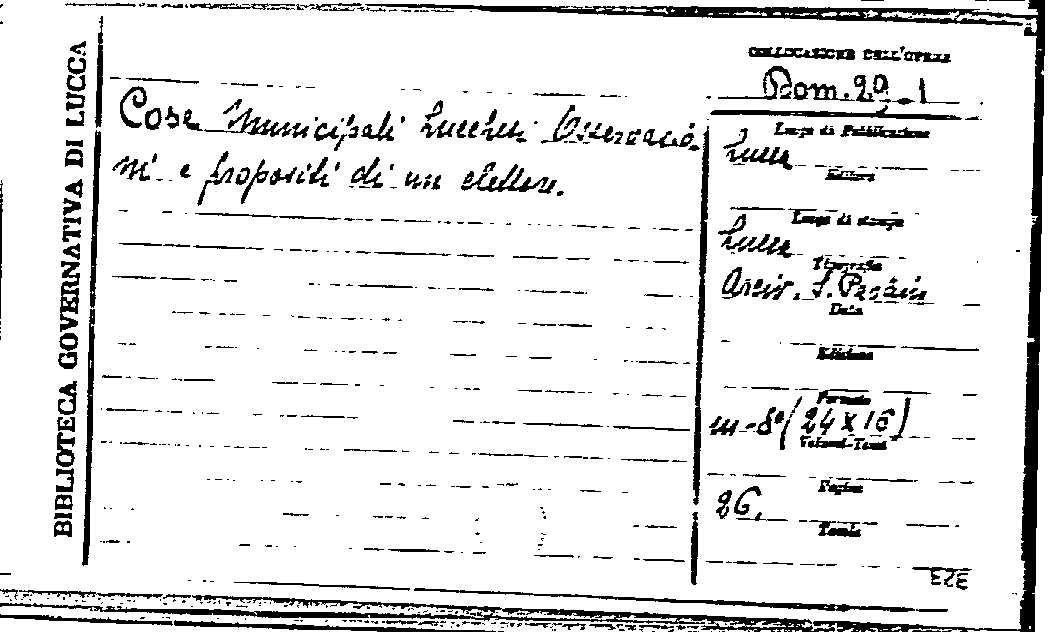 BIBLIOTECA GOVERNATIVA DI LUCCA
COLLOCAZIONE DELL'OPERA
Cose Municipali Lucchesi Osservazio-
ni e propositi di un elettore.
Luogo di Pubblicazione
Lucca
Editore
Luogo di stampa
Lucca
Tipografia
Arciv. S. Paolino
Data
Edizione
Formato
in-8° (24 x 16)
Volumi-Tomi
Pagine
26.
Tavole